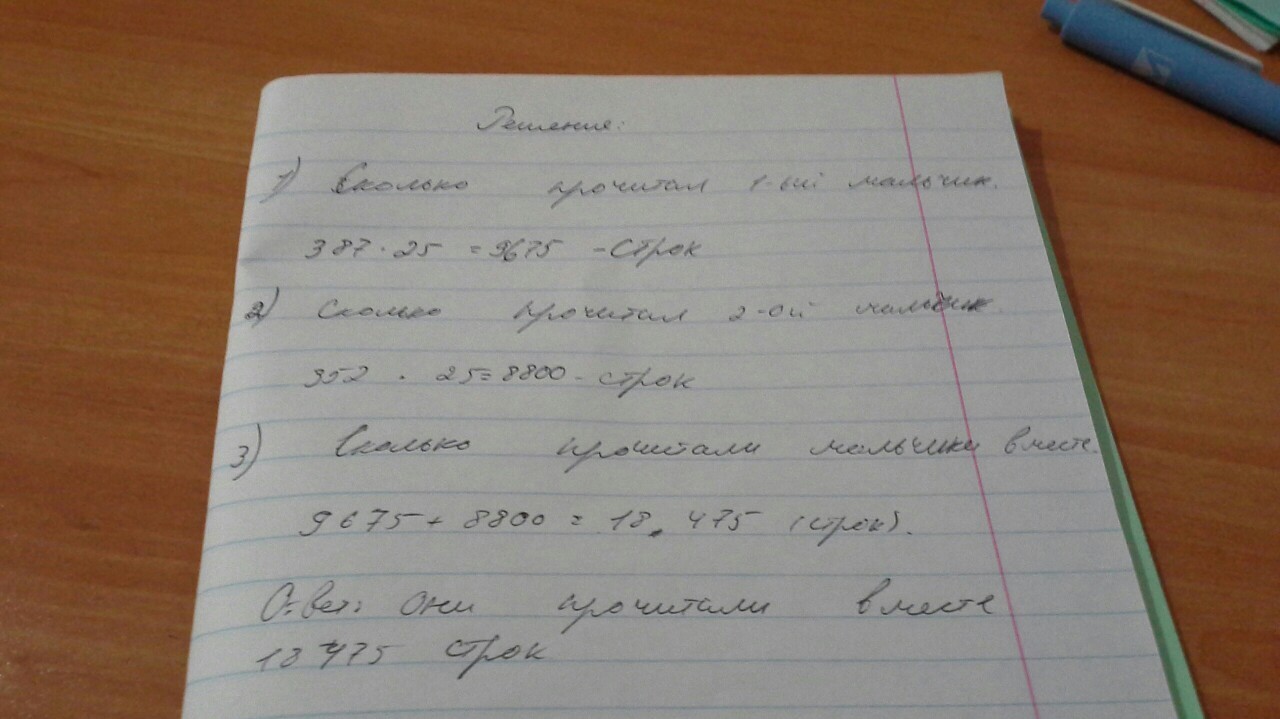 Решение:
1) Сколько прочитал 1-ый мальчик.
387 · 25 = 9675 - строк
2) Сколко прочитал 2-ой мальчик.
352 · 25 = 8800 - строк
3) Сколько прочитали мальчики вместе.
9675 + 8800 = 18.475 (строк).
Ответ: Они прочитали вместе
18475 строк